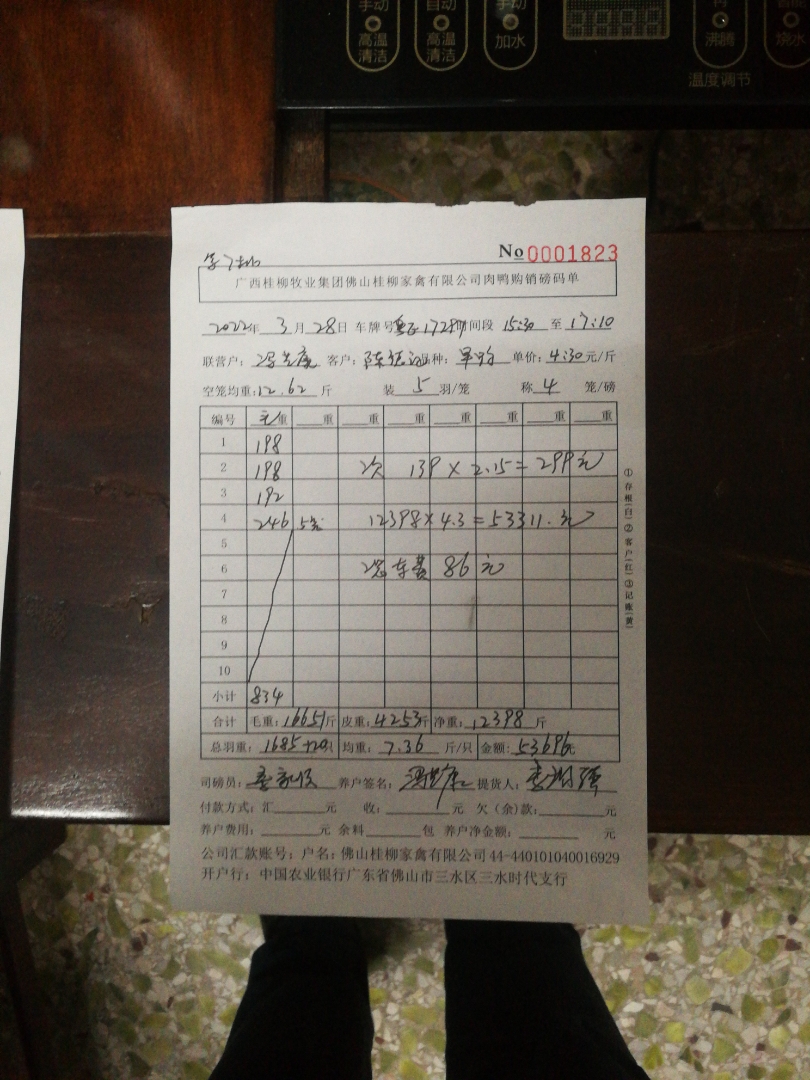 手动 高温清洁
自动 高温清洁
手动 加水
沸腾
烧水
温度调节
No 0001823
广西桂柳牧业集团佛山桂柳家禽有限公司肉鸭购销磅码单
2022年 3月 28日 车牌号 17287 时间段 15:30 至 17:10
联营户: 客户: 陈 品种: 单价: 4.30元/斤
空笼均重: 12.62 斤 装 5 羽/笼 称 4 笼/磅
编号 毛重 重 重 重 重 重 重 重
1 198
2 198 次 139 × 2.15 = 299元
3 192
4 246 5 12398 × 4.3 = 53311.元
5
6 车费 86 元
7
8
9
10
小计 834
合计 毛重: 16651斤 皮重: 4253斤 净重: 12398 斤
总羽重: 1685+20只 均重: 7.36 斤/只 金额: 53696元
司磅员: 养户签名: 提货人: 李
付款方式: 汇 元 收: 元 欠(余)款: 元
养户费用: 元 余料 包 养户净金额: 元
公司汇款账号: 户名: 佛山桂柳家禽有限公司 44-440101040016929
开户行: 中国农业银行广东省佛山市三水区三水时代支行
①存根(白)②客户(红)③记账(黄)